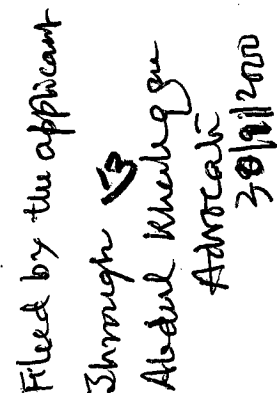 Filed by the applicant
Through
Abdul Khaleque
Advocate
2000